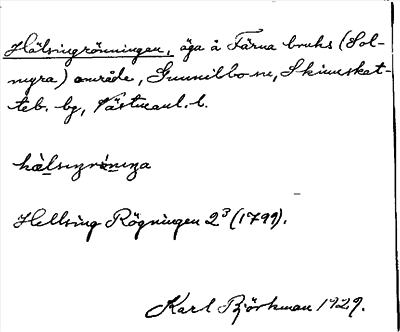 Hälsingrönningen, äga å Färna bruks (Sol-
myra) område, Gunnilbo sn, Skinnskat-
teb. hd, Västmanl. l.
hä̀lsiŋrö́niŋa
Hellsing Rögningen 2³ (1799).
Karl Björkman 1929.